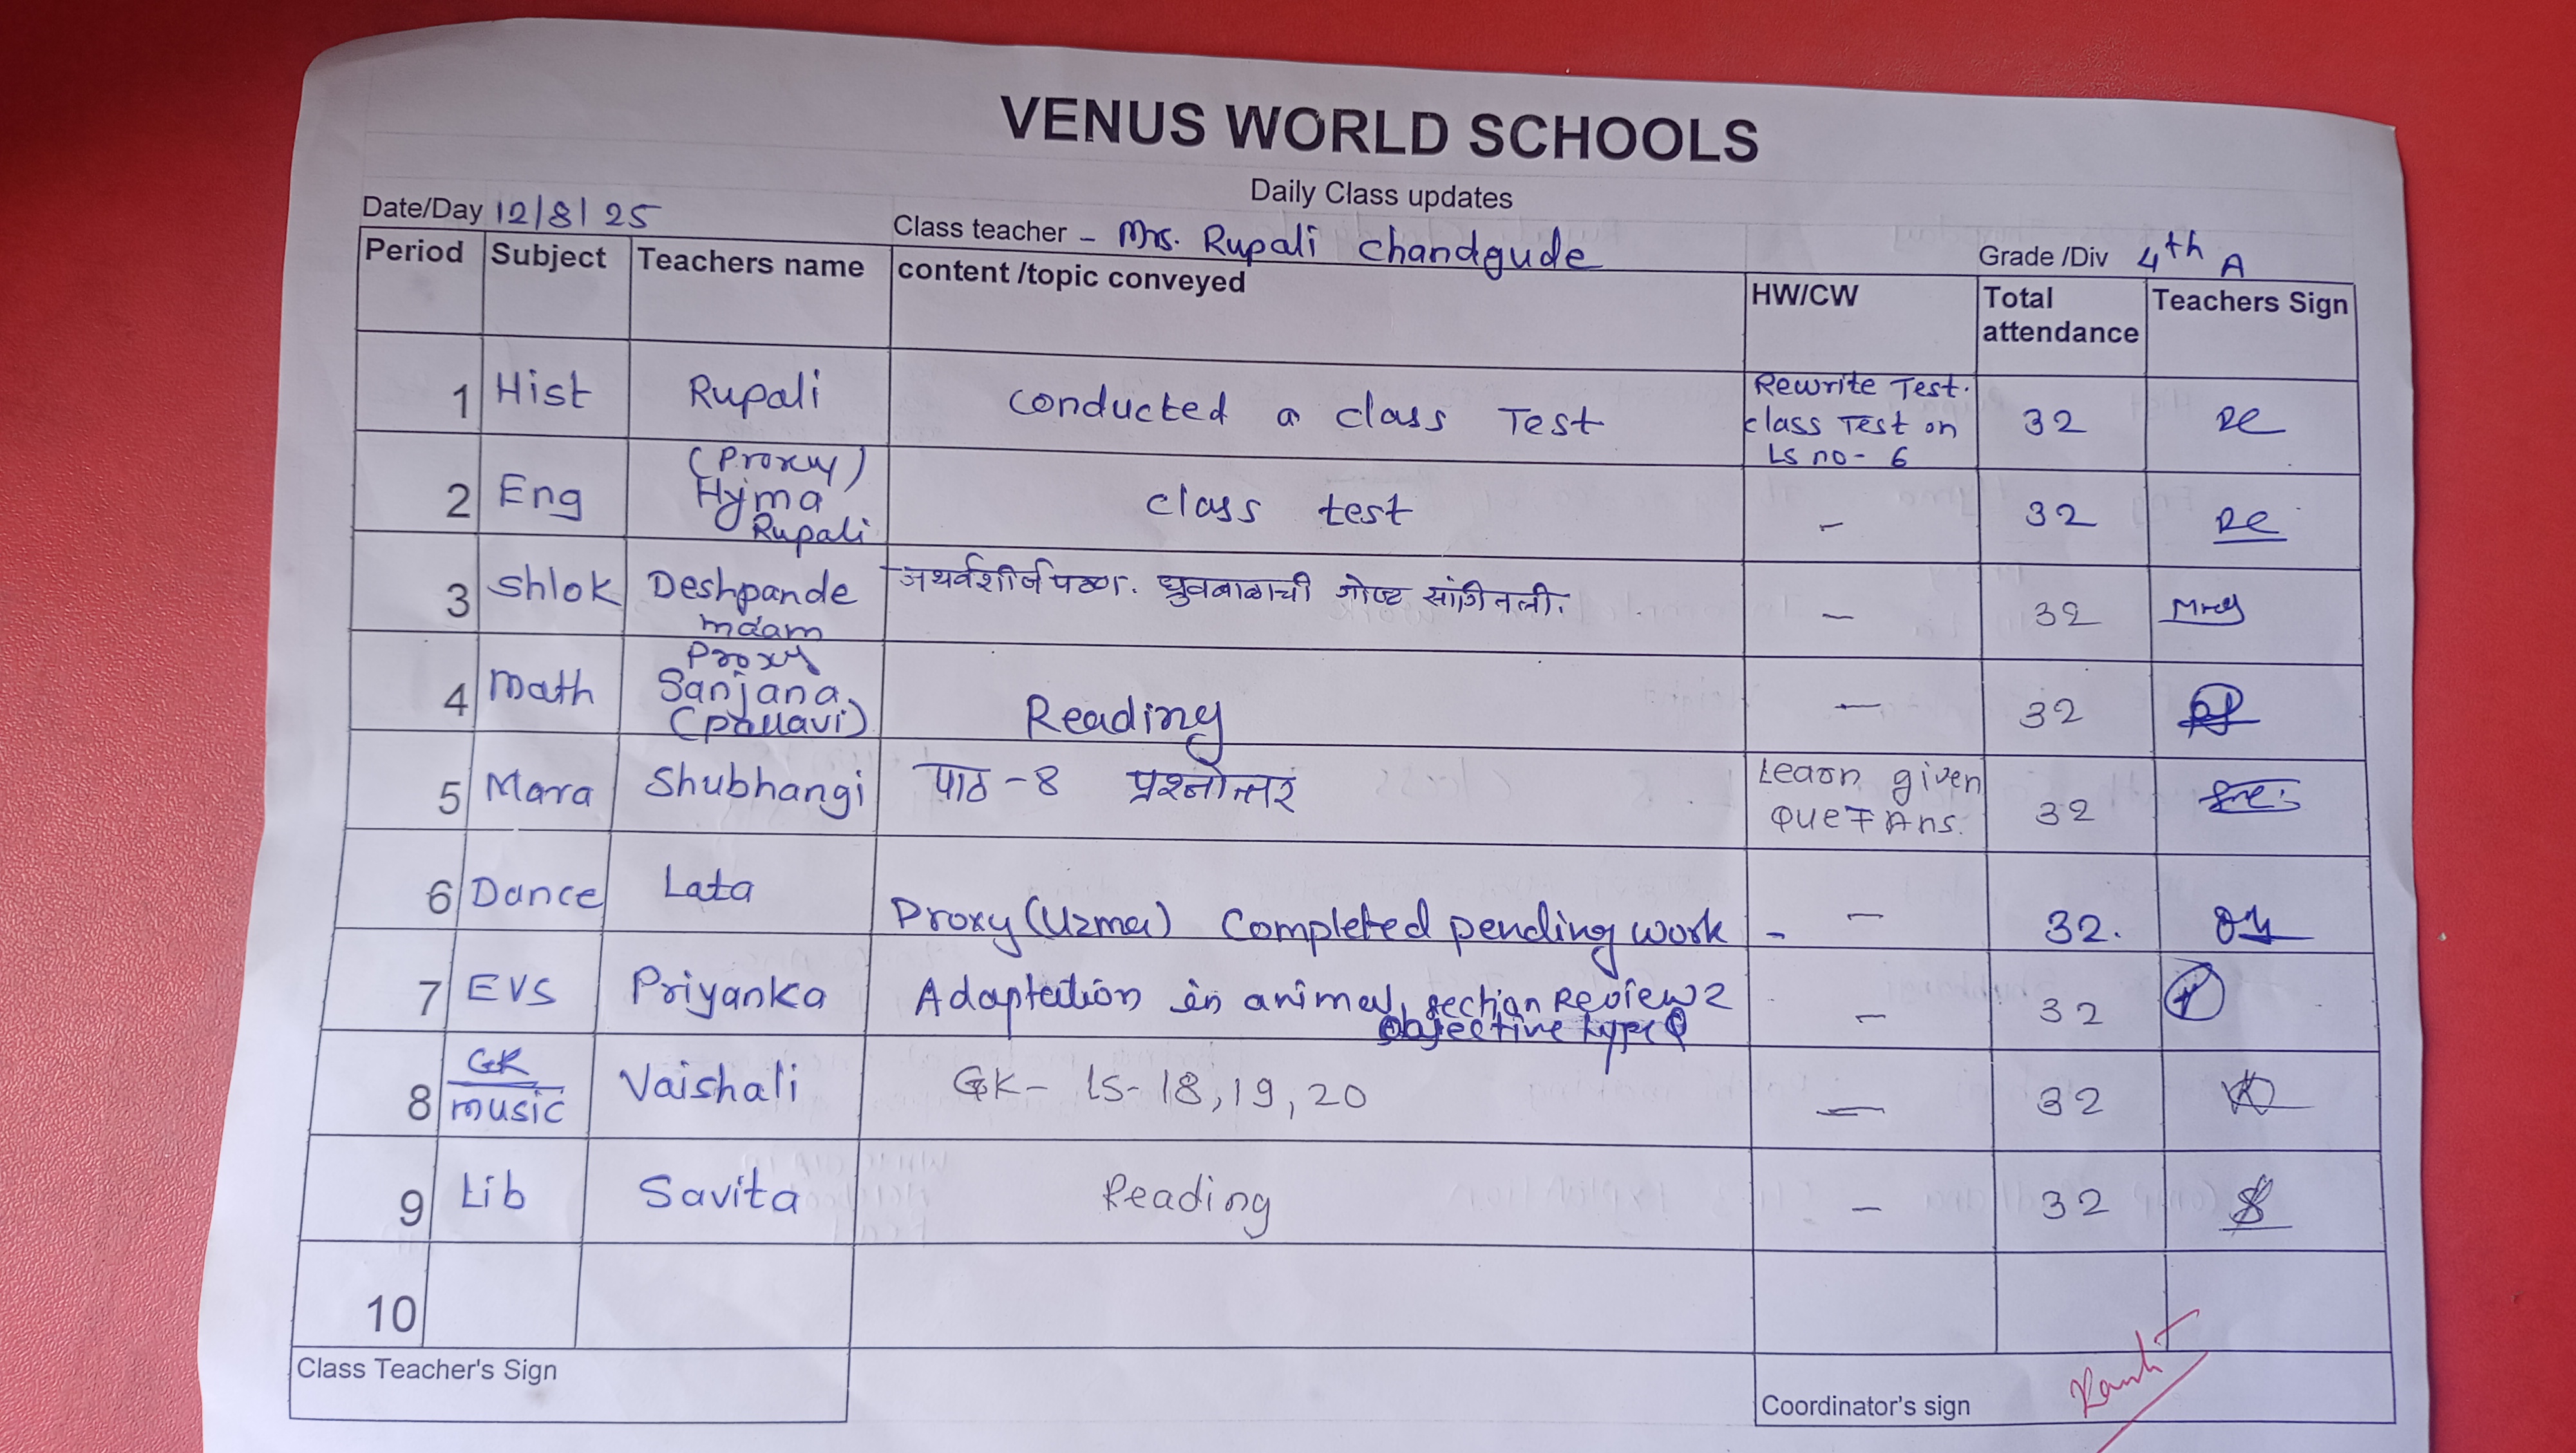 VENUS WORLD SCHOOLS
Daily Class updates
Date/Day 12/8/25
Class teacher - Mrs. Rupali Chandgude
Grade /Div 4th A
Period Subject Teachers name content /topic conveyed HW/CW Total attendance Teachers Sign
1 Hist Rupali Conducted a class Test Rewrite Test. class Test on Ls no- 6 32
2 Eng (Proxy) Hyma Rupali class test - 32
3 Shlok Deshpande maam अथर्वशीर्ष पठण. ध्रुवबाळाची गोष्ट सांगितली. - 32
4 Math Proxy Sanjana (Pallavi) Reading - 32
5 Mara Shubhangi पाठ -8 प्रश्नोत्तरं Learn given Que & Ans. 32
6 Dance Lata Proxy (Uzma) Completed pending work - - 32.
7 EVS Priyanka Adaptation in animal, section Review 2 objective type Q - 32
8 GK music Vaishali GK- ls- 18, 19, 20 - 32
9 Lib Savita Reading - 32
10
Class Teacher's Sign
Coordinator's sign